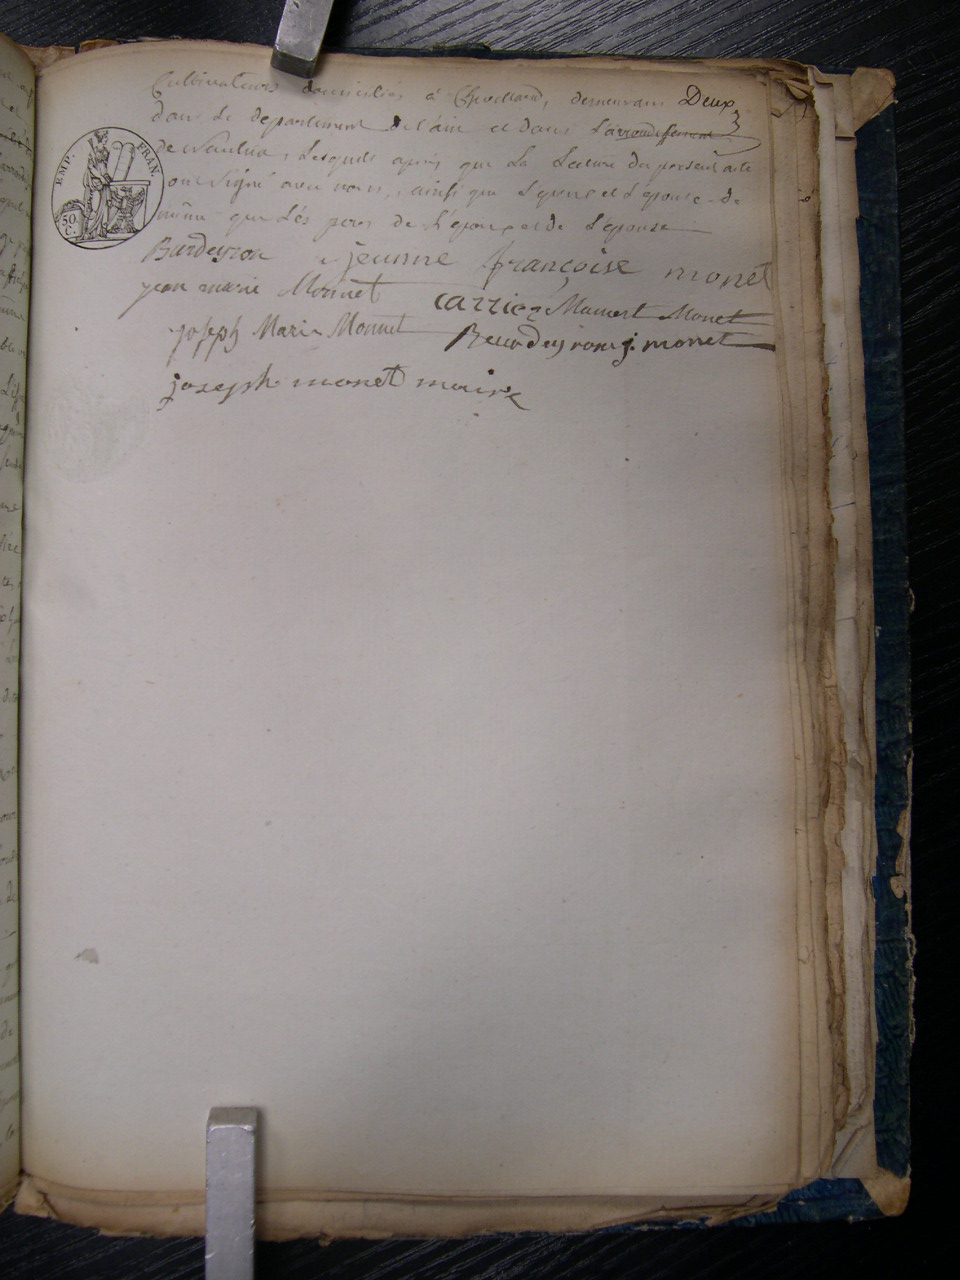 Cultivateurs domiciliés à Chevillard, demeurans Deux
dans Le departement de l'ain et dans L'arrondissement
de Nantua, Lesquels après que La Lecture du present acte
ont signé avec nous, ainsi que L'epoux et L'epouse de
même que Lés peres de L'epoux et de L'épouse
EMP. FRAN.
50 C.
Burdeyron jeanne françoise monet
jean marie Monnet carrier Mamert Monet
joseph Marie Monnet Beurdeyron j. monet
joseph monet maire